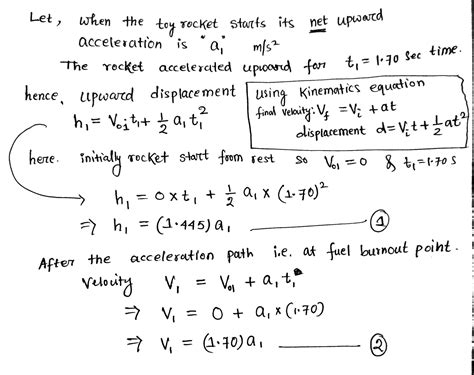 Let, when the toy rocket starts its net upward
acceleration is "a₁" m/s²
The rocket accelerated upward for t₁ = 1.70 sec time.
hence, upward displacement
h₁ = V₀₁t₁ + ½ a₁t₁²
using Kinematics equation
final velocity: V_f = V_i + at
displacement d = V_i t + ½at²
here. initially rocket start from rest so V₀₁ = 0 & t₁ = 1.70 s
h₁ = 0 × t₁ + ½ a₁ × (1.70)²
⇒ h₁ = (1.445) a₁ ——— ①
After the acceleration path i.e. at fuel burnout point.
Velocity V₁ = V₀₁ + a₁t₁
⇒ V₁ = 0 + a₁ × (1.70)
⇒ V₁ = (1.70) a₁ ——— ②